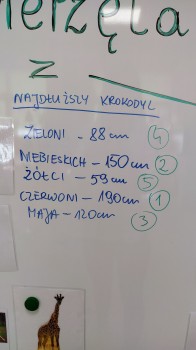 ierzęta
z
NAJDŁUŻSZY KROKODYL
ZIELONI - 88 cm 4
NIEBIESKICH - 150 cm 2
ŻÓŁCI - 59 cm 5
CZERWONI - 190 cm 1
MAJA - 120 cm 3